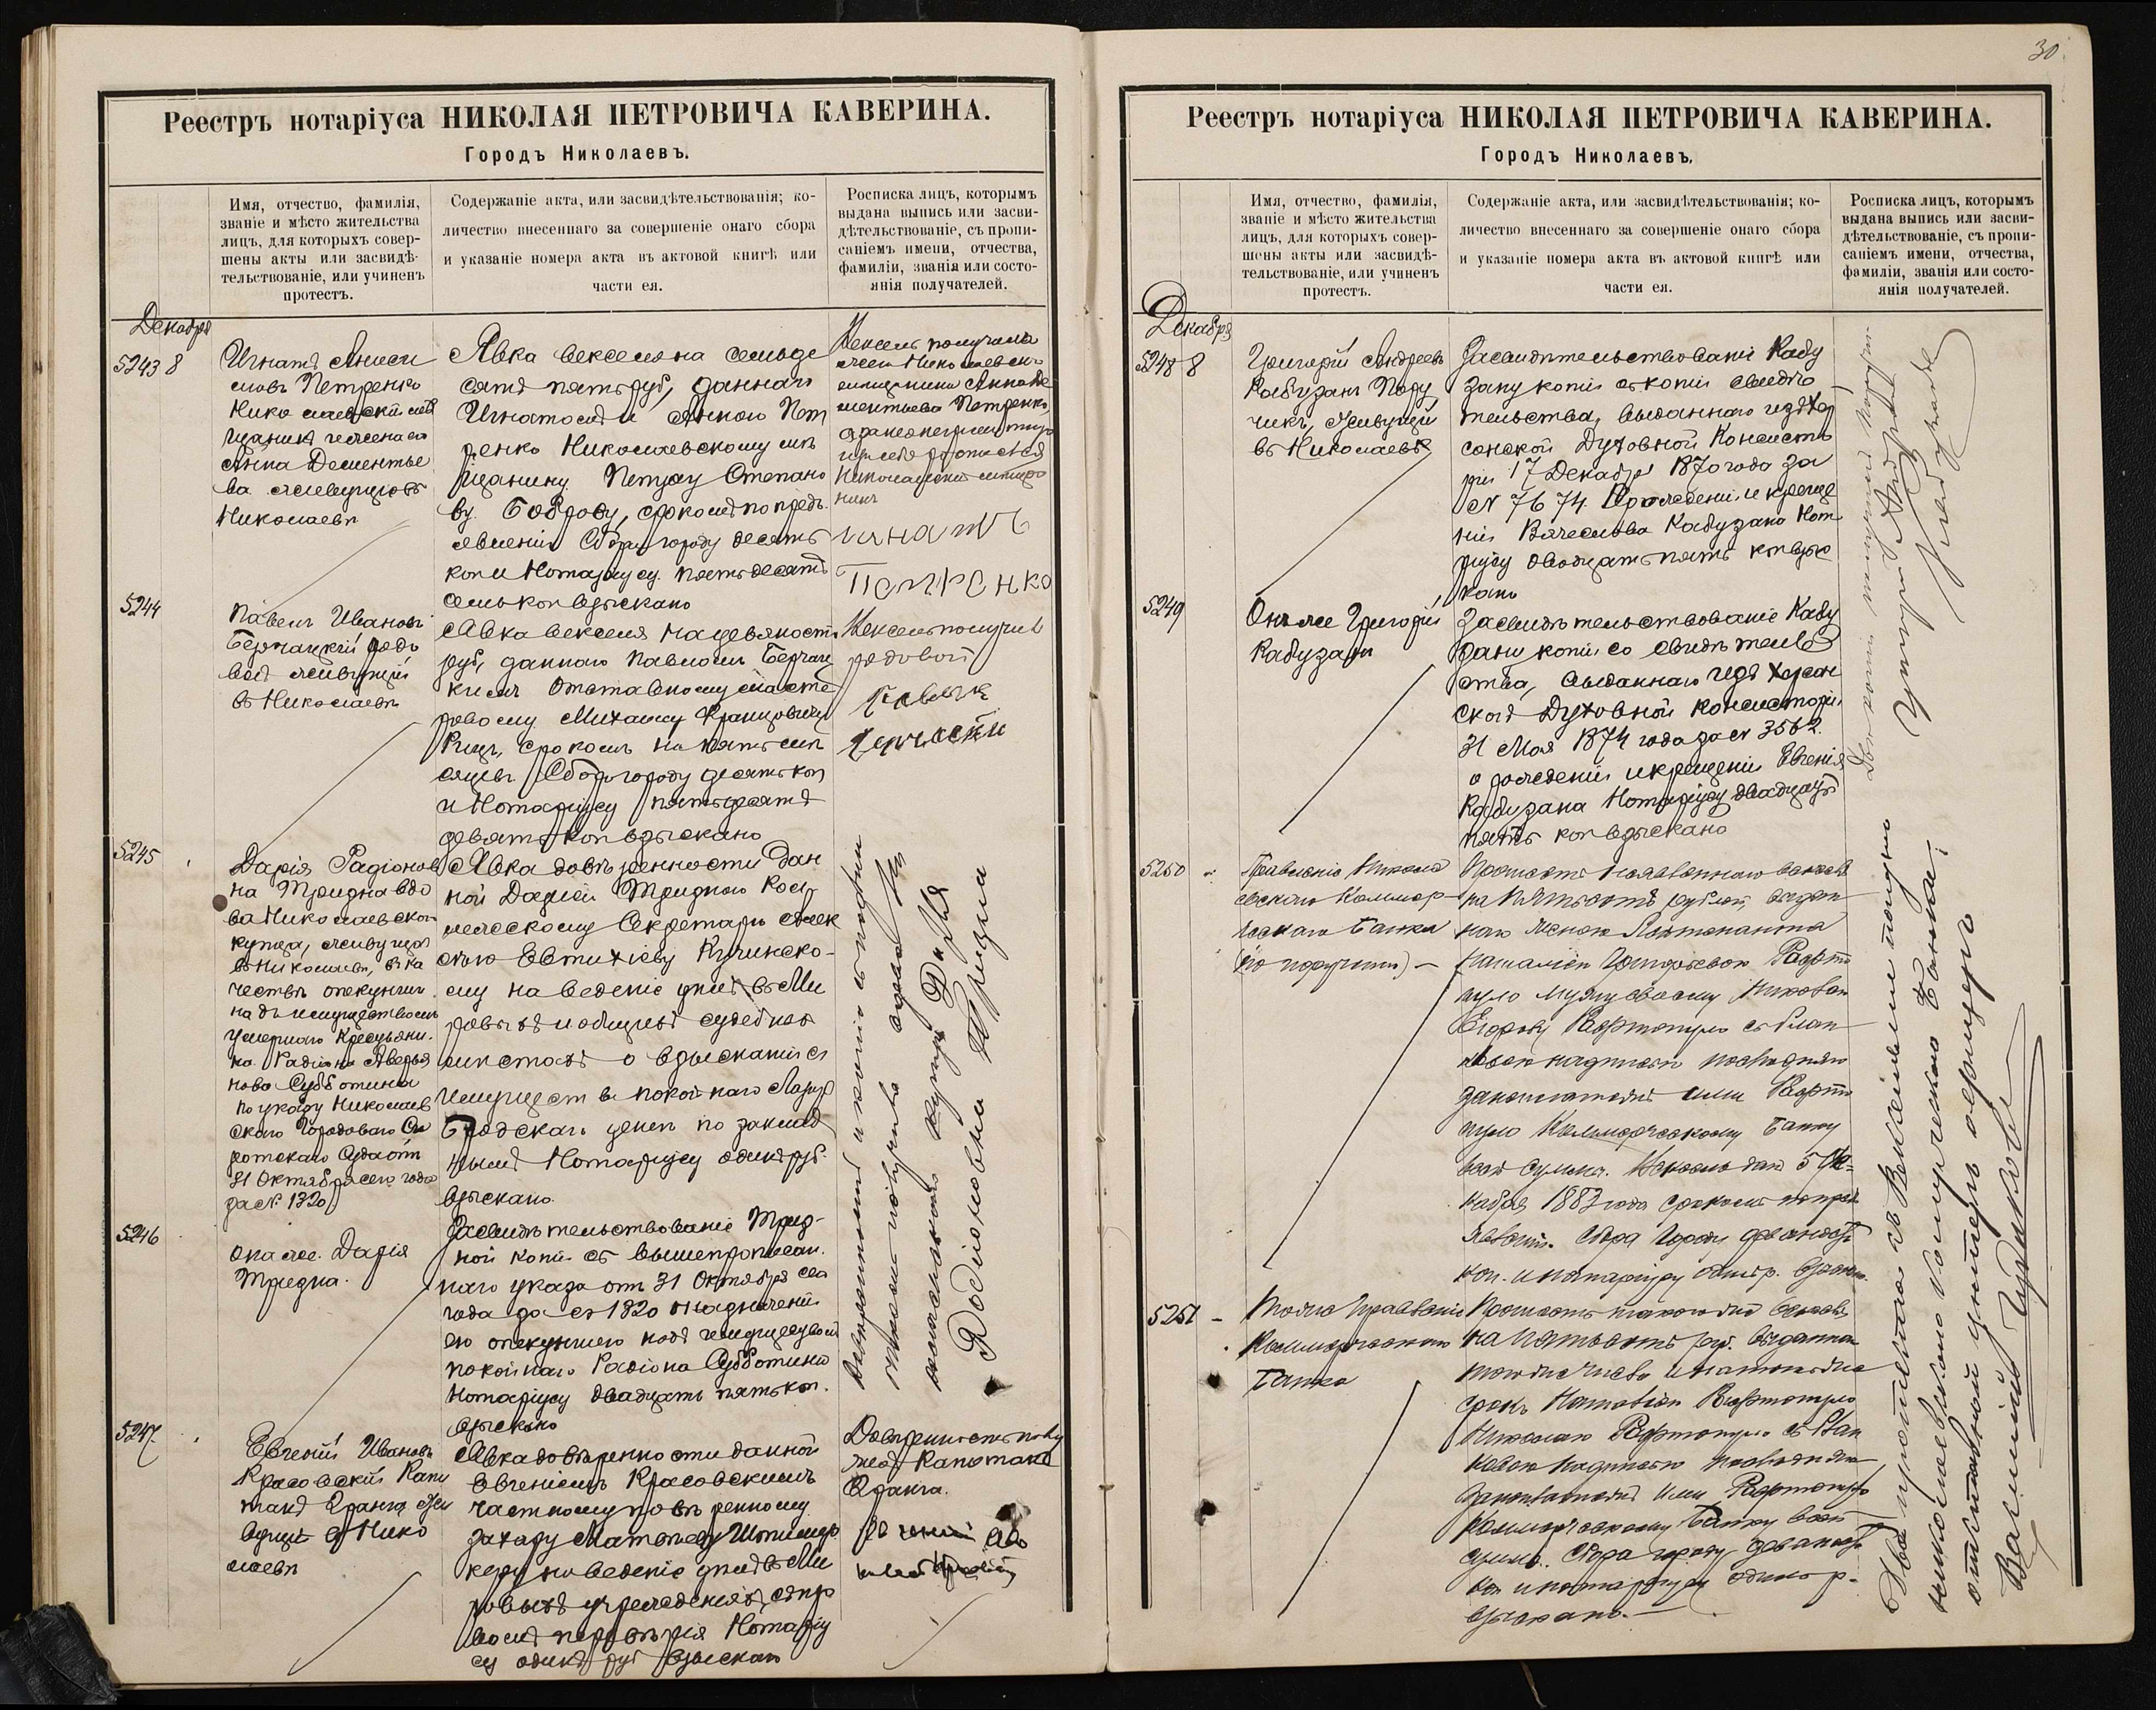 Реестръ нотаріуса НИКОЛАЯ ПЕТРОВИЧА КАВЕРИНА.
Городъ Николаевъ.
Имя, отчество, фамилія,
званіе и мѣсто жительства
лицъ, для которыхъ совер-
шены акты или засвидѣ-
тельствованіе, или учиненъ
протестъ.
Содержаніе акта, или засвидѣтельствованія; ко-
личество внесеннаго за совершеніе онаго сбора
и указаніе номера акта въ актовой книгѣ или
части ея.
Росписка лицъ, которымъ
выдана выпись или засви-
дѣтельствованіе, съ пропи-
саніемъ имени, отчества,
фамиліи, званія или состо-
янія получателей.
Декабря
5243 8
Игнатъ Аниси
мовъ Петренко
Николаевскій мѣ
щанинъ и жена его
Анна Дементье
ва живущіе въ
Николаевѣ
Явка векселя на семьде
сятъ пять руб, даннаго
Игнатомъ и Анною Пет
ренко Николаевскому мѣ
щанину Петру Степано
ву Боброву, срокомъ по предъ
явленію Сборъ городу десять
коп и Нотаріусу пятьдесятъ
семь коп взыскано
Вексель получила
Николаевск
мѣщанка Анна Де
ментьева Петренко,
а за неграмотну
ю
Николаевскій мѣща
нинъ
игнатъ
Петренко
5244
Павелъ Ивановъ
рядо
вой живущій
въ Николаевѣ
Явка векселя на девяносто
руб, даннаго Павломъ
кимъ Отставному масте
ровому Михаилу Францовичу
срокомъ на пять мѣ
сяцевъ Сборъ городу десять коп
и Нотаріусу пятьдесятъ
девять коп взыскано
Вексель получилъ
рядовой
Павелъ
5245
Дарія Радіонов
на Тридна вдо
ва Николаевскаго
купца, живущая
въ Николаевѣ, въ ка
чествѣ опекунши
надъ имуществомъ
умершаго Крестьяни
на Радіона Аверья
нова Субботина
по указу Николаев
скаго Городоваго Си
ротскаго Суда отъ
31 Октября сего года
за № 1320
Явка довѣренности дан
ной Даріей Тридною Кол
лежскому Секретарю Алек
сѣю Евтихіеву Кучинско-
му на веденіе дѣлъ въ Ми
ровыхъ и общихъ судебныхъ
мѣстахъ о взысканіи съ
имущества покойнаго Лазаря
Бродскаго денегъ по заклад
нымъ Нотаріусу одинъ руб.
взыскано.
5246
Она же Дарія
Тридна.
Засвидѣтельствованіе Трид-
ной копіи съ вышепрописан.
наго указа отъ 31 Октября сего
года за № 1320 о назначеніи
ею опекуншею надъ имуществомъ
покойнаго Радіона Субботина
Нотаріусу двадцать пять коп.
взыскано
Довѣренность и копію съ
получила вдова Ни
колаевскаго купца Дарія
Родіоновна Тридна
5247
Евгеній Ивановъ
Красовскій Капи
танъ 2 ранга жи
вущій въ Нико
лаевѣ
Явка довѣренности данной
Евгеніемъ Красовскимъ
частному повѣренному
Захару Матвѣеву
керу на веденіе дѣлъ въ Ми
ровыхъ учрежденіяхъ, съ пра
вомъ передовѣрія Нотаріу
су одинъ руб взыскано
Довѣренность полу
чилъ Капитанъ
2 ранга.
30
Реестръ нотаріуса НИКОЛАЯ ПЕТРОВИЧА КАВЕРИНА.
Городъ Николаевъ.
Имя, отчество, фамилія,
званіе и мѣсто жительства
лицъ, для которыхъ совер-
шены акты или засвидѣ-
тельствованіе, или учиненъ
протестъ.
Содержаніе акта, или засвидѣтельствованія; ко-
личество внесеннаго за совершеніе онаго сбора
и указаніе номера акта въ актовой книгѣ или
части ея.
Росписка лицъ, которымъ
выдана выпись или засви-
дѣтельствованіе, съ пропи-
саніемъ имени, отчества,
фамиліи, званія или состо-
янія получателей.
Декабря
5248 8
Григорій Андреевъ
Кабузанъ Пору
чикъ, живущій
въ Николаевѣ
Засвидѣтельствованіе Кабу
зану копіи съ копіи свидѣ
тельства, выданнаго изъ Хер
сонской Духовной Консисто
ріи 17 Декабря 1870 года за
№ 7674. О рожденіи и креще
ніи Вячеслава Кабузана Нота
ріусу двадцать пять к взыс
кано
5249
Онъ же Григорій
Кабузанъ
Засвидѣтельствованіе Кабу
зану копіи со свидѣтель
ства, выданнаго изъ Херсон
ской Духовной Консисторіи
31 Мая 1874 года за № 3562.
о рожденіи и крещеніи Евгенія
Кабузана Нотаріусу двадцать
пять коп взыскано
Двѣ копіи получилъ
5250
Правленіе Никола
евскаго Коммер-
ческаго Банка
(по порученію) —
Протестъ неявленнаго векселя
на пятьсотъ рублей, выдан
наго женою Лейтенанта
Наталіею Григорьевою
Николаю
Егорову съ блан
ковою надписью послѣдняго
Коммерческому Банку
всей суммы. Вексель данъ 5 Де-
кабря 1883 года срокомъ по предъ
явленію. Сбора Городу девяносто
коп. и нотаріусу одинъ р. взыскано.
5251
Тоже Правленіе
Коммерческаго
Банка
Протестъ такого же векселя
на пятьсотъ руб. выданнаго
того же числа и на тотъ же
срокъ Наталіею
Николаю съ блан
ковою надписью послѣдняго
Коммерческому Банку всей
суммы. Сбора городу девяносто
коп и нотаріусу одинъ р-
взыскано.—
Два протеста съ векселями получилъ
николаевскаго коммерческаго банка,
отставной унтеръ офицеръ
Василій